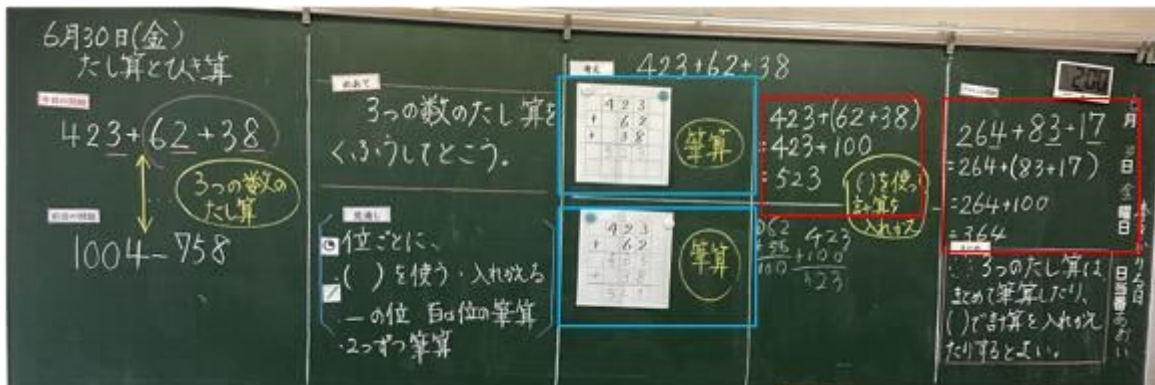 6月30日(金)
たし算とひき算
今日の問題
423+62+38
3つの数の
たし算
前回の問題
1004-758
めあて
3つの数のたし算を
くふうしてとこう。
見通し
・位ごとに、
・( )を使う・入れかえる
・一の位 百の位の筆算
・2つずつ筆算
考え
423+62+38
423
+ 62
+ 38
523
筆算
423
+ 62
+ 38
筆算
423+(62+38)
=423+100
=523
( )を使って
計算を
入れかえ
423
+100
523
264+83+17
=264+(83+17)
=264+100
=364
まとめ
3つのたし算は、
まとめて筆算したり、
( )で計算を入れかえ
たりするとよい。
月
日
金
曜日
日当番